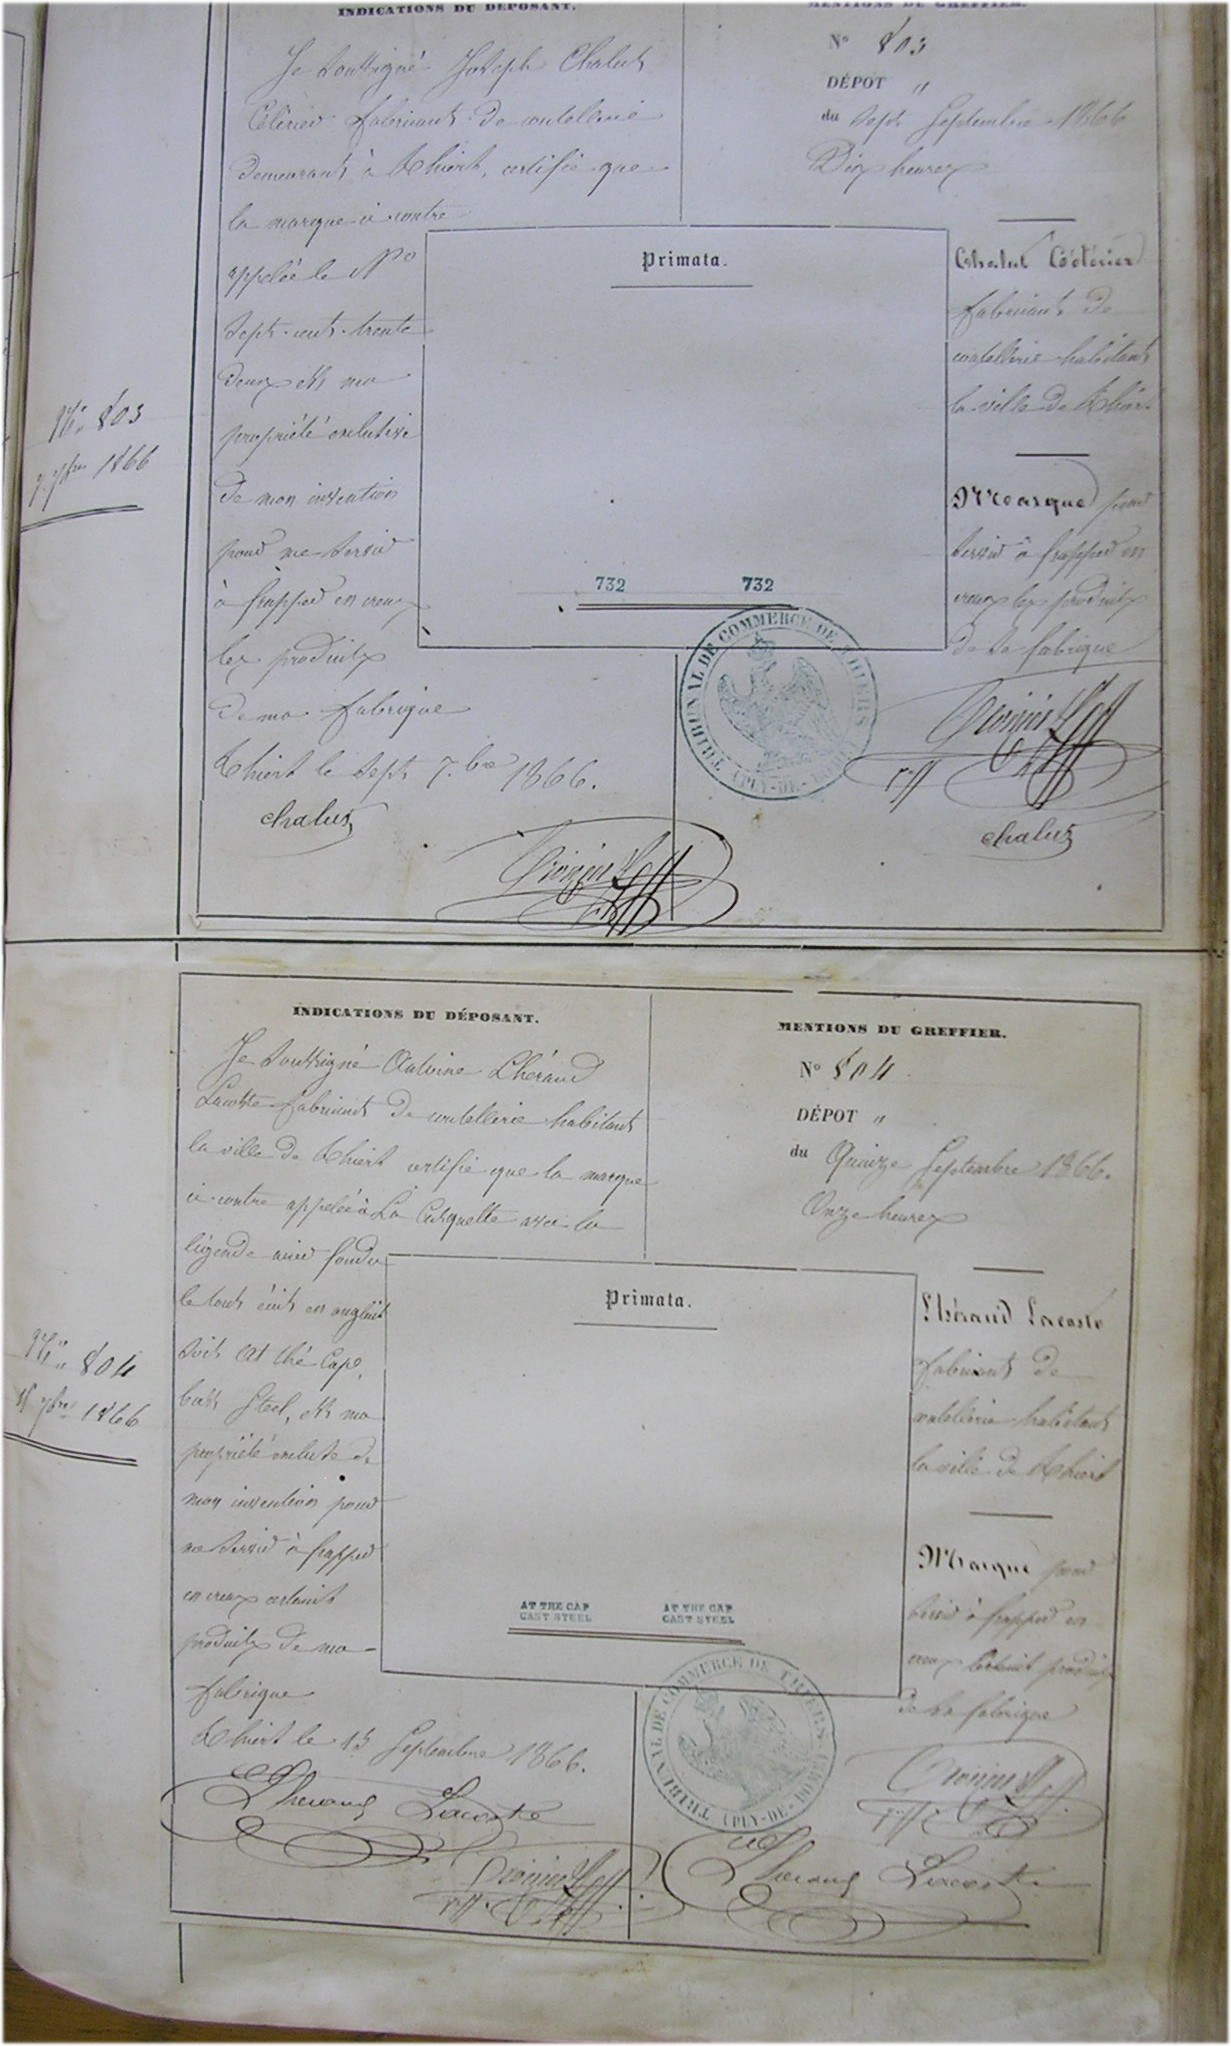 INDICATIONS DU DÉPOSANT.
Je soussigné Joseph Chalus
Célérier fabricant de coutellerie
demeurant à Thiers, certifie que
la marque ci contre
appelée le No
sept cent trente
deux est ma
propriété exclusive
de mon invention
pour me servir
à frapper en creux
les produits
de ma fabrique
Thiers le sept 7.bre 1866.
chalus
MENTIONS DU GREFFIER.
No 803
DÉPOT "
du sept Septembre 1866
Dix heures
Chalus Célérier
fabricant de
coutellerie habitant
la ville de Thiers
Marque pour
servir à frapper en
creux les produits
de sa fabrique
chalus
Primata.
732 732
TRIBUNAL DE COMMERCE DE THIERS (PUY-DE-DOME)
No. 803
7 7bre 1866
INDICATIONS DU DÉPOSANT.
Je soussigné Antoine Lhéraud
Lacoste fabricant de coutellerie habitant
la ville de Thiers certifie que la marque
ci contre appelée à La Casquette avec la
légende acier fondu
le tout écrit en anglais
soit At the Cap,
Cast Steel, est ma
propriété exclusive de
mon invention pour
me servir à frapper
en creux certains
produits de ma
fabrique
Thiers le 15 Septembre 1866.
Lheraud Lacoste
MENTIONS DU GREFFIER.
No 804
DÉPOT "
du Quinze Septembre 1866.
Onze heures
Lhéraud Lacoste
fabricant de
coutellerie habitant
la ville de Thiers
Marque pour
servir à frapper en
creux certains produits
de sa fabrique
Lheraud Lacoste
Primata.
AT THE CAP AT THE CAP
CAST STEEL CAST STEEL
TRIBUNAL DE COMMERCE DE THIERS (PUY-DE-DOME)
No. 804
15 7bre 1866